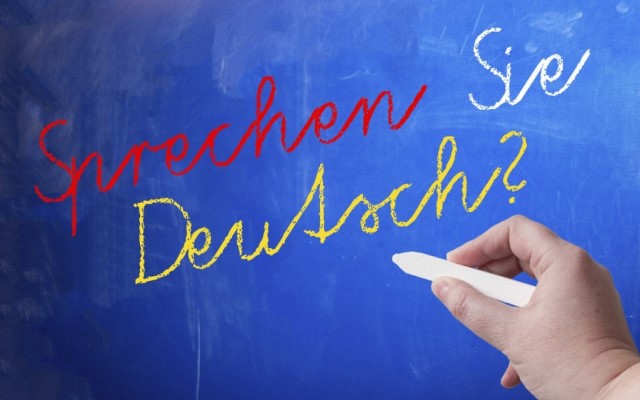 Sprechen Sie
Deutsch?